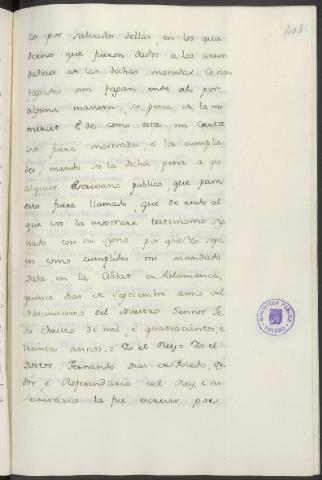 do por salvado dellas, en los qua
dernos que fueron dados a los arren
dadores de las dichas monedas. Et non
fagades nin fagan ende al, por
alguna manera, so pena de la mi
mercet. E de como esta mi Carta
vos fuere mostrada, e la cumplie
des, mando so la dicha pena a qu
alquier Escrivano publico, que para
esto fuere llamado, que de ende al
que vos la mostrare testimonio sig
nado con su signo, por que Yo sepa
en como cumplides mi mandado.
Dada en la Cibdat de Salamanca,
quince dias de Septiembre año del
Nascimiento del Nuestro Sennor Je
su Christo de mil, e quatrocientos, e
treinta annos. = Yo el Rey = Yo el
Doctor Fernando Dias de Toledo, Oy
dor, e Referendario del Rey, e su
secretario la fice escrevir por
BIBLIOTECA PUBLICA
TOLEDO